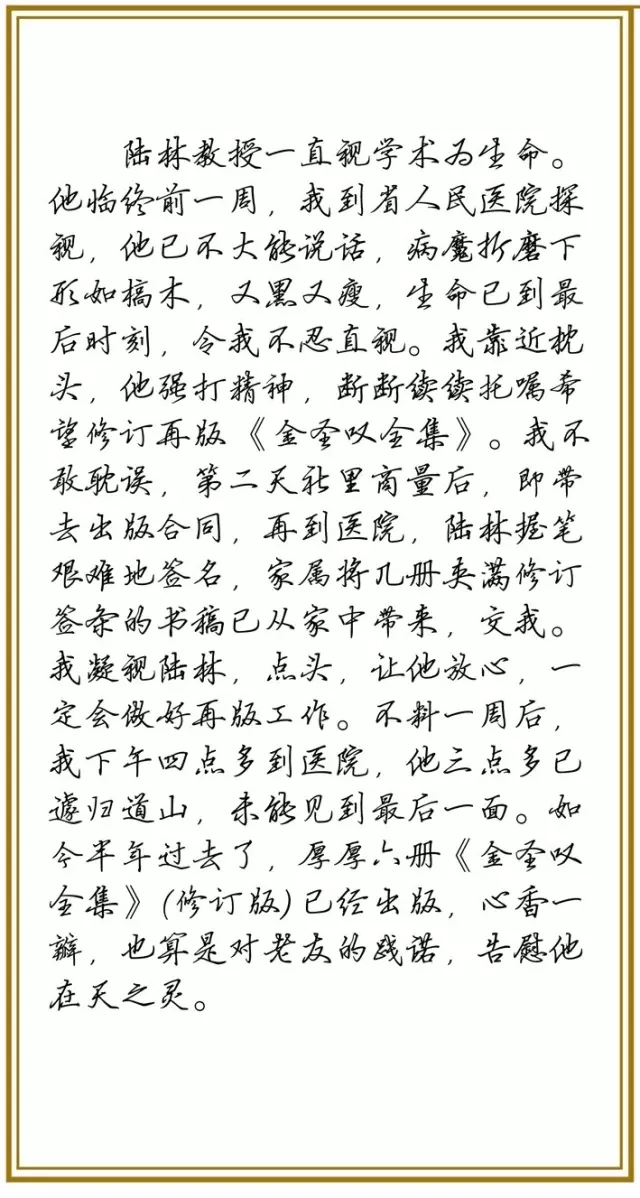 陆林教授一直视学术为生命。
他临终前一周，我到省人民医院探
视，他已不大能说话，病魔折磨下
形如槁木，又黑又瘦，生命已到最
后时刻，令我不忍直视。我靠近枕
头，他强打精神，断断续续托嘱希
望修订再版《金圣叹全集》。我不
敢耽误，第二天社里商量后，即带
去出版合同，再到医院，陆林握笔
艰难地签名，家属将几册夹满修订
签条的书稿已从家中带来，交我。
我凝视陆林，点头，让他放心，一
定会做好再版工作。不料一周后，
我下午四点多到医院，他三点多已
遽归道山，未能见到最后一面。如
今半年过去了，厚厚六册《金圣叹
全集》(修订版)已经出版，心香一
瓣，也算是对老友的践诺，告慰他
在天之灵。